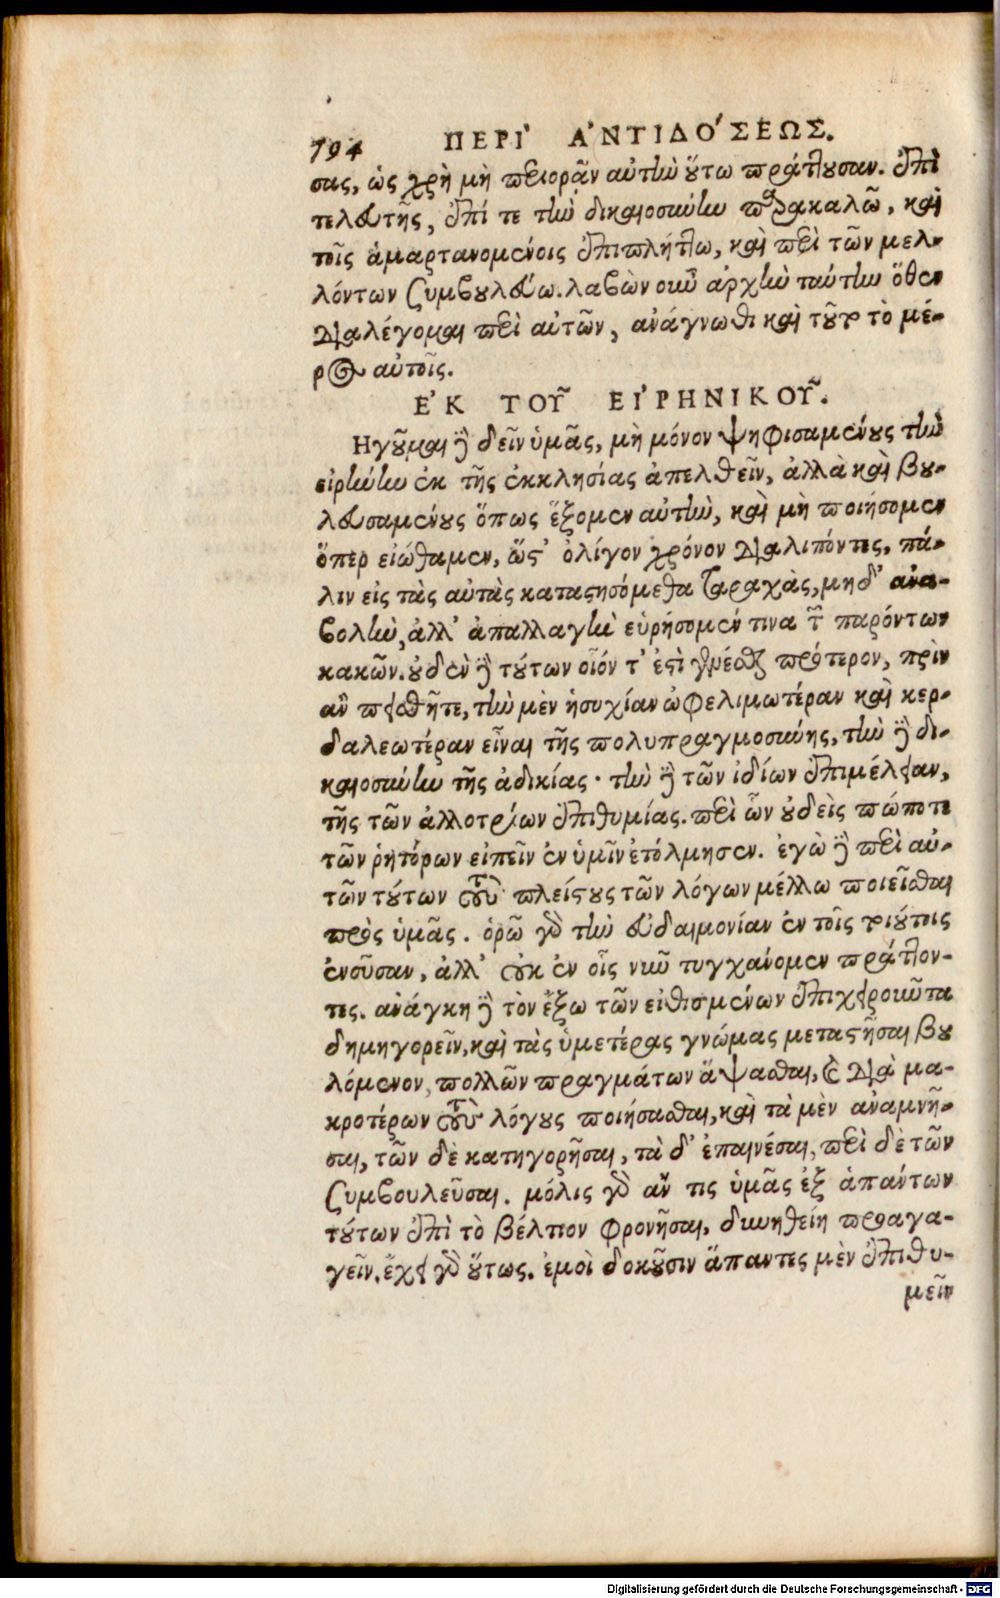 794 ΠΕΡῚ ἈΝΤΙΔΌΣΕΩΣ.
σας, ὡς χρὴ μὴ περιορᾷν αὐτὴν οὕτω πράττουσαν. ἐπὶ
τελευτῆς, ἐπί τε τὴν δικαιοσύνην παρακαλῶ, καὶ
τοῖς ἁμαρτανομένοις ἐπιπλήττω, καὶ περὶ τῶν μελ-
λόντων ξυμβουλεύω. λαβὼν οὖν ἀρχὴν ταύτην ὅθεν
διαλέγομαι περὶ αὐτῶν, ἀνάγνωθι καὶ τοῦτο τὸ μέ-
ρος αὐτοῖς.
ἘΚ ΤΟΥ͂ ΕἸΡΗΝΙΚΟΥ͂.
Ηγοῦμαι δὲ δεῖν ὑμᾶς, μὴ μόνον ψηφισαμένους τὴν
εἰρήνην ἐκ τῆς ἐκκλησίας ἀπελθεῖν, ἀλλὰ καὶ βου-
λευσαμένους ὅπως ἕξομεν αὐτὴν, καὶ μὴ ποιήσομεν
ὅπερ εἰώθαμεν, ὥστ' ὀλίγον χρόνον διαλιπόντες, πά-
λιν εἰς τὰς αὐτὰς καταστησόμεθα ταραχὰς, μηδ' ἀνα-
βολὴν, ἀλλ' ἀπαλλαγὴν εὑρήσομέν τινα τῶν παρόντων
κακῶν. οὐδὲν δὲ τούτων οἷόν τ' ἐστὶ γενέσθαι πρότερον, πρὶν
ἂν πεισθῆτε, τὴν μὲν ἡσυχίαν ὠφελιμωτέραν καὶ κερ-
δαλεωτέραν εἶναι τῆς πολυπραγμοσύνης, τὴν δὲ δι-
καιοσύνην τῆς ἀδικίας · τὴν δὲ τῶν ἰδίων ἐπιμέλειαν,
τῆς τῶν ἀλλοτρίων ἐπιθυμίας. περὶ ὧν οὐδεὶς πώποτε
τῶν ῥητόρων εἰπεῖν ἐν ὑμῖν ἐτόλμησεν. ἐγὼ δὲ περὶ αὐ-
τῶν τούτων τοὺς πλείστους τῶν λόγων μέλλω ποιεῖσθαι
πρὸς ὑμᾶς. ὁρῶ γὰρ τὴν εὐδαιμονίαν ἐν τοῖς τοιούτοις
ἐνοῦσαν, ἀλλ' οὐκ ἐν οἷς νῦν τυγχάνομεν πράττον-
τες. ἀνάγκη δὲ τὸν ἔξω τῶν εἰθισμένων ἐπιχειροῦντα
δημηγορεῖν, καὶ τὰς ὑμετέρας γνώμας μεταστῆσαι βου
λόμενον, πολλῶν πραγμάτων ἅψασθαι, καὶ διὰ μα-
κροτέρων τοὺς λόγους ποιήσασθαι, καὶ τὰ μὲν ἀναμνῆ-
σαι, τῶν δὲ κατηγορῆσαι, τὰ δ' ἐπαινέσαι, περὶ δὲ τῶν
ξυμβουλεῦσαι. μόλις γὰρ ἄν τις ὑμᾶς ἐξ ἁπάντων
τούτων ἐπὶ τὸ βέλτιον φρονῆσαι, δυνηθείη προαγα-
γεῖν. ἔχει γὰρ οὕτως. ἐμοὶ δοκοῦσιν ἅπαντες μὲν ἐπιθυ-
μεῖν
Digitalisierung gefördert durch die Deutsche Forschungsgemeinschaft - DFG